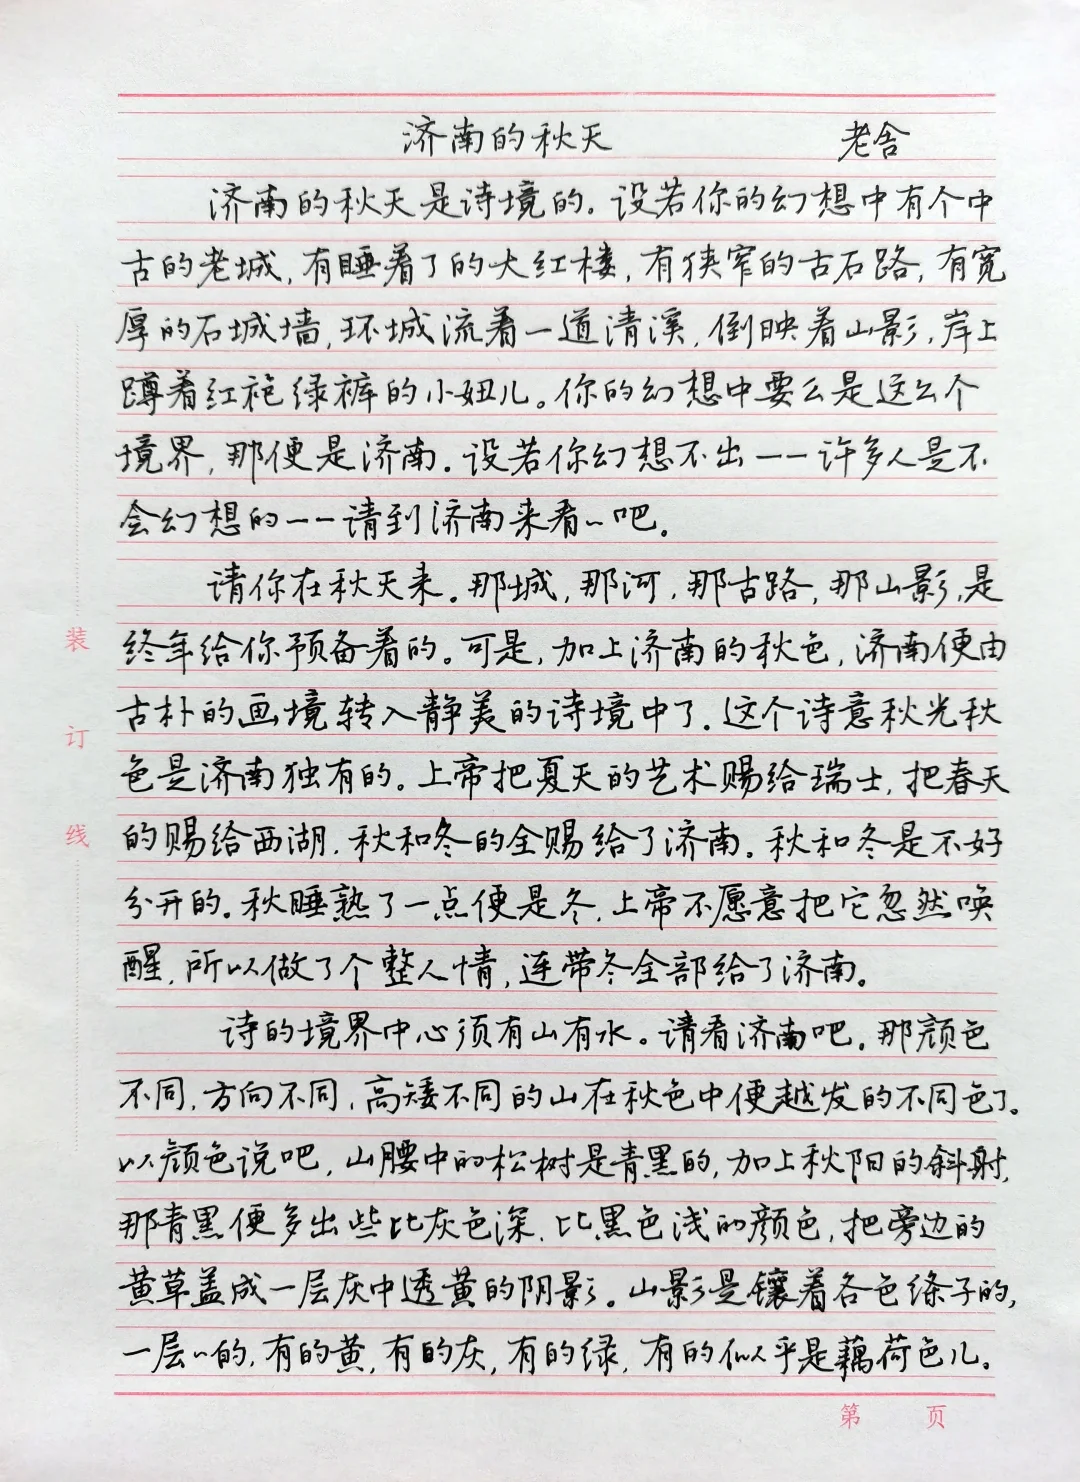 济南的秋天 老舍
济南的秋天是诗境的。设若你的幻想中有个中
古的老城,有睡着了的大红楼,有狭窄的古石路,有宽
厚的石城墙,环城流着一道清溪,倒映着山影,岸上
蹲着红袍绿裤的小妞儿。你的幻想中要么是这么个
境界,那便是济南。设若你幻想不出——许多人是不
会幻想的——请到济南来看~吧。
请你在秋天来。那城,那河,那古路,那山影,是
终年给你预备着的。可是,加上济南的秋色,济南便由
古朴的画境转入静美的诗境中了。这个诗意秋光秋
装
色是济南独有的。上帝把夏天的艺术赐给瑞士,把春天
订
的赐给西湖,秋和冬的全赐给了济南。秋和冬是不好
线
分开的。秋睡熟了一点便是冬,上帝不愿意把它忽然唤
醒,所以做了个整人情,连带冬全部给了济南。
诗的境界中心须有山有水。请看济南吧。那颜色
不同,方向不同,高矮不同的山在秋色中便越发的不同色了。
以颜色说吧,山腰中的松树是青黑的,加上秋阳的斜射,
那青黑便多出些比灰色深,比黑色浅的颜色,把旁边的
黄草盖成一层灰中透黄的阴影。山影是镶着各色绦子的,
一层~的,有的黄,有的灰,有的绿,有的似乎是藕荷色儿。
第 页